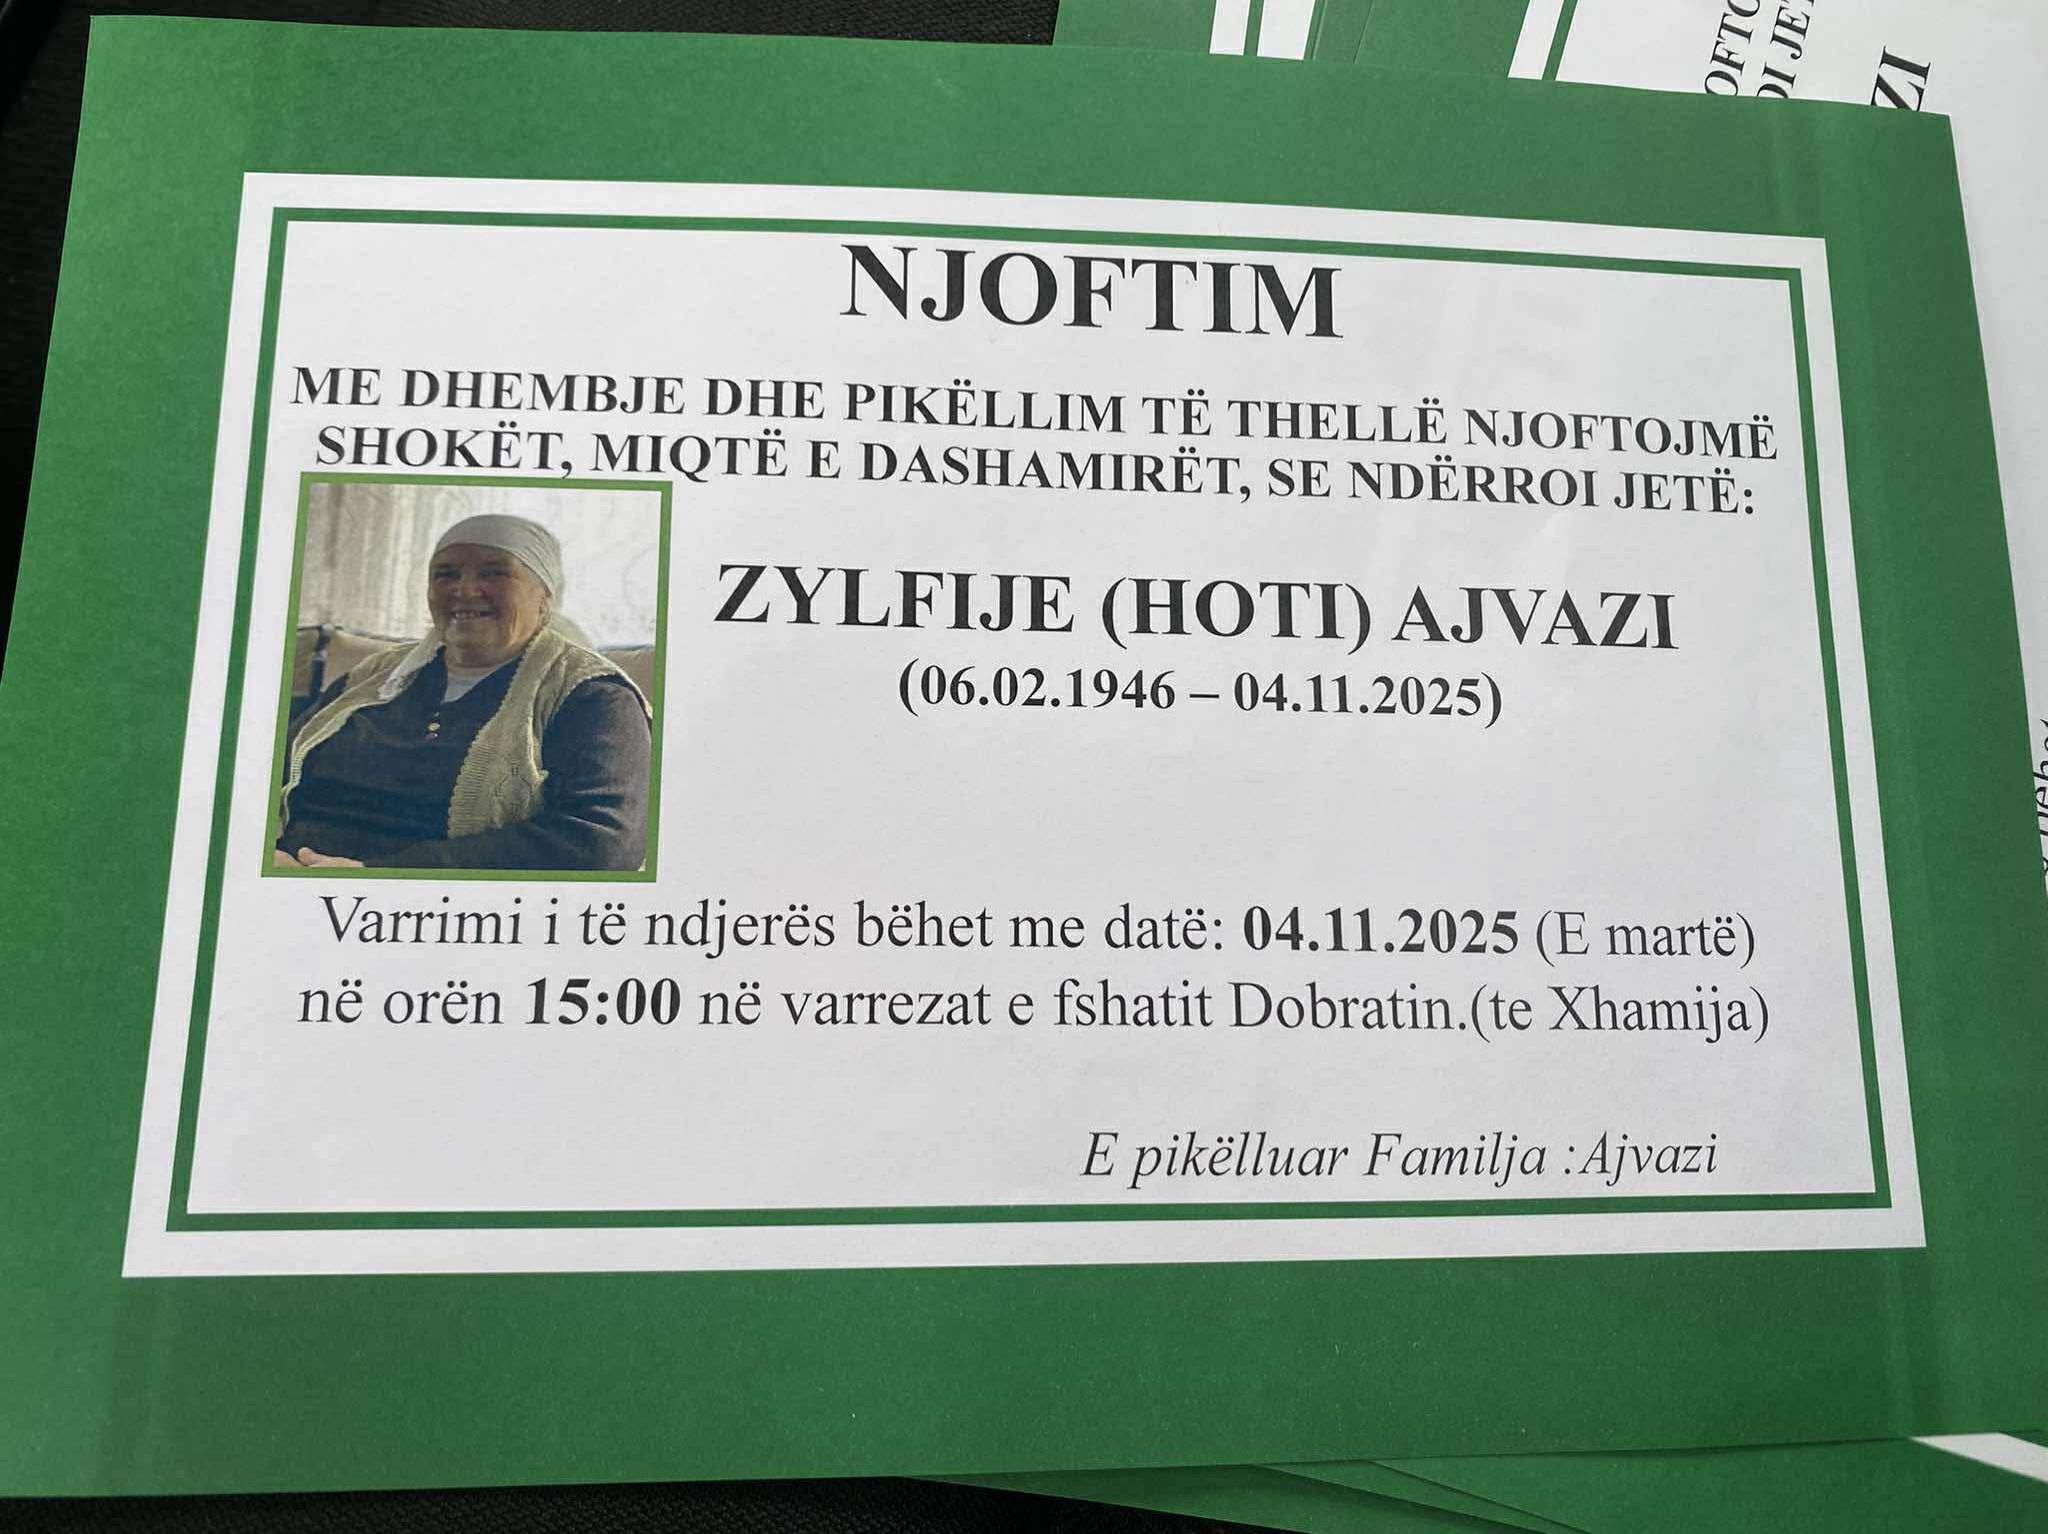 NJOFTIM
ME DHEMBJE DHE PIKËLLIM TË THELLË NJOFTOJMË
SHOKËT, MIQTË E DASHAMIRËT, SE NDËRROI JETË:
ZYLFIJE (HOTI) AJVAZI
(06.02.1946 – 04.11.2025)
Varrimi i të ndjerës bëhet me datë: 04.11.2025 (E martë)
në orën 15:00 në varrezat e fshatit Dobratin.(te Xhamija)
E pikëlluar Familja :Ajvazi